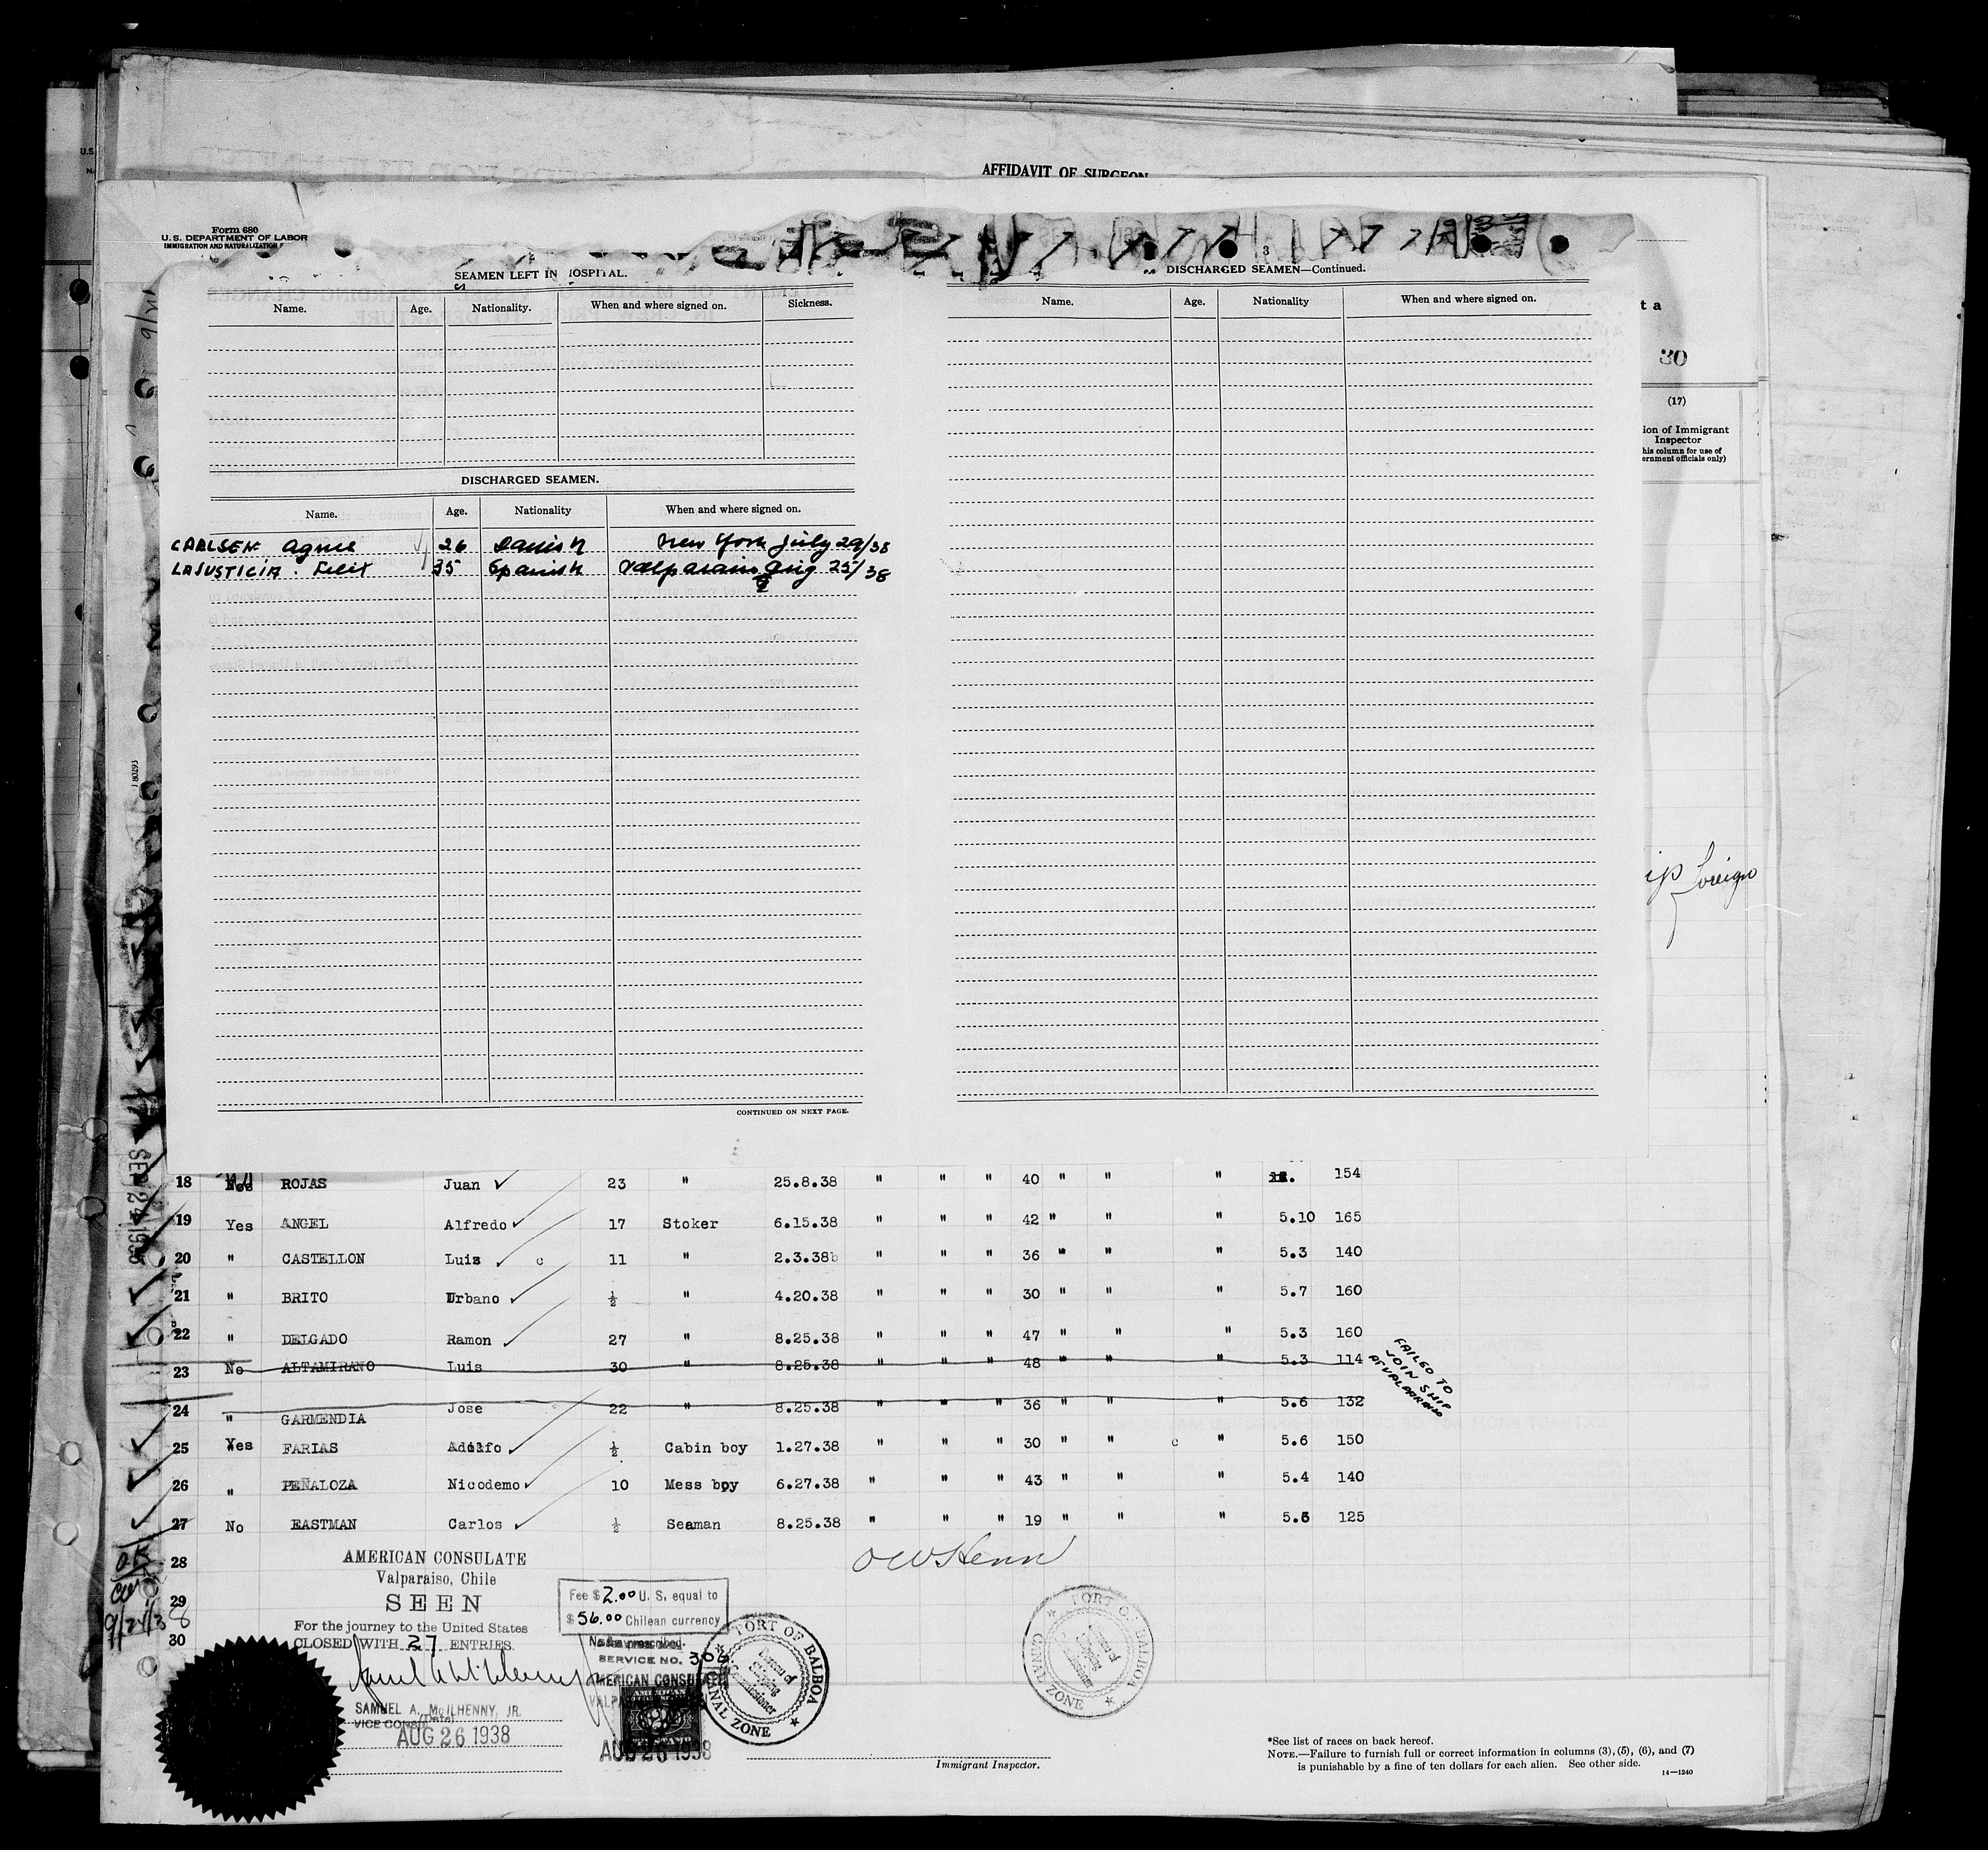 U.S.
AFFIDAVIT OF SURGEON
Form 680
U. S. DEPARTMENT OF LABOR
IMMIGRATION AND NATURALIZATION
3
SEAMEN LEFT IN HOSPITAL.
Name. Age. Nationality. When and where signed on. Sickness.
DISCHARGED SEAMEN.
Name. Age. Nationality When and where signed on.
CARLSEN Agne 26 Danish New York July 29/38
LAJUSTICIA. Felix 35 Spanish Valparaiso Aug 25/38
CONTINUED ON NEXT PAGE.
DISCHARGED SEAMEN—Continued.
Name. Age. Nationality When and where signed on.
t a
30
(17)
ion of Immigrant
Inspector
his column for use of
ernment officials only)
ip Foreign
180293
SEP 24 1938
18 ROJAS Juan 23 " 25.8.38 " " " 40 " " " 154
19 Yes ANGEL Alfredo 17 Stoker 6.15.38 " " " 42 " " " 5.10 165
20 " CASTELLON Luis c 11 " 2.3.38 " " " 36 " " " 5.3 140
21 " BRITO Urbano ½ " 4.20.38 " " " 30 " " " 5.7 160
22 " DELGADO Ramon 27 " 8.25.38 " " " 47 " " " 5.3 160
23 No ALTAMIRANO Luis 30 " 8.25.38 " " " 48 " " " 5.3 114
FAILED TO
JOIN SHIP
AT VALPARAISO
24 " GARMENDIA Jose 22 " 8.25.38 " " " 36 " " " 5.6 132
25 Yes FARIAS Adolfo ½ Cabin boy 1.27.38 " " " 30 " " c " 5.6 150
26 " PEÑALOZA Nicodemo 10 Mess boy 6.27.38 " " " 43 " " " 5.4 140
27 No EASTMAN Carlos ½ Seaman 8.25.38 " " " 19 " " " 5.6 125
28
29
30
OK
9/24/38
AMERICAN CONSULATE
Valparaiso, Chile
SEEN
For the journey to the United States
CLOSED WITH 27 ENTRIES.
SAMUEL A. McILHENNY, JR.
VICE CONSUL
(Date)
AUG 26 1938
Fee $ 2.00 U. S. equal to
$ 56.00 Chilean currency
No fee prescribed.
SERVICE NO. 306
AMERICAN CONSULATE
AUG 26 1938
PORT OF BALBOA
CANAL ZONE
Bureau of
Shipping
Commissioner
PORT OF BALBOA
CANAL ZONE
Immigrant Inspector.
*See list of races on back hereof.
NOTE.—Failure to furnish full or correct information in columns (3), (5), (6), and (7)
is punishable by a fine of ten dollars for each alien. See other side.
14—1240